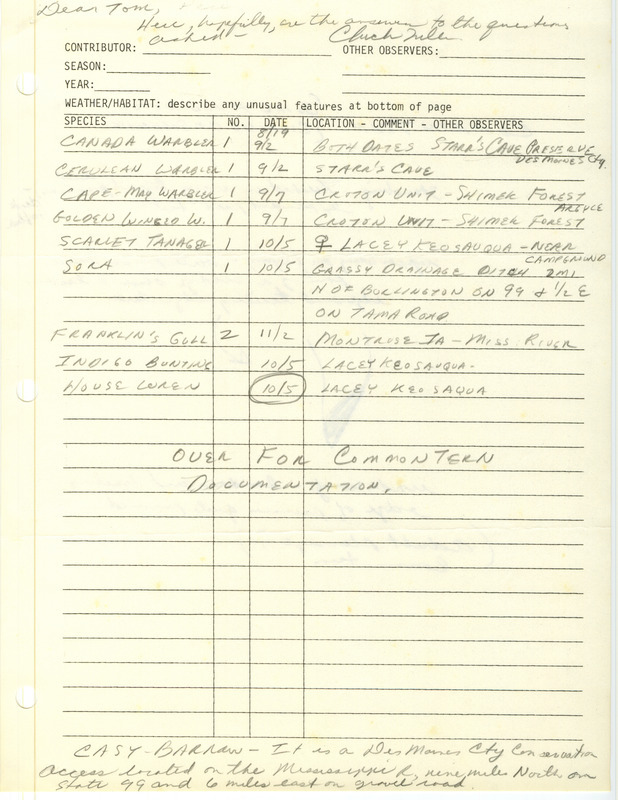 Dear Tom,
Here, hopefully, are the answers to the questions
asked - Chuck Fuller
CONTRIBUTOR: OTHER OBSERVERS:
SEASON:
YEAR:
WEATHER/HABITAT: describe any unusual features at bottom of page
SPECIES NO. DATE LOCATION - COMMENT - OTHER OBSERVERS
CANADA WARBLER 1 8/19 9/2 BOTH DATES STARR'S CAVE PRESERVE
DES MOINES CTY.
CERULEAN WARBLER 1 9/2 STARR'S CAVE
CAPE-MAY WARBLER 1 9/7 CROTON UNIT - SHIMEK FOREST
ARGYLE
GOLDEN WINGED W. 1 9/7 CROTON UNIT - SHIMEK FOREST
SCARLET TANAGER 1 10/5 ♀ LACEY KEOSAUQUA - NEAR
CAMPGROUND
SORA 1 10/5 GRASSY DRAINAGE DITCH 2MI
N OF BURLINGTON ON 99 & 1/2 E
ON TAMA ROAD
FRANKLIN'S GULL 2 11/2 MONTROSE IA - MISS. RIVER
INDIGO BUNTING 10/5 LACEY KEOSAUQUA.
HOUSE WREN 10/5 LACEY KEOSAQUA
OVER FOR COMMON TERN
DOCUMENTATION.
CASY-BARROW - It is a Des Moines Cty Conservation
access located on the Mississippi R, nine miles North on
State 99 and 6 miles east on gravel road.